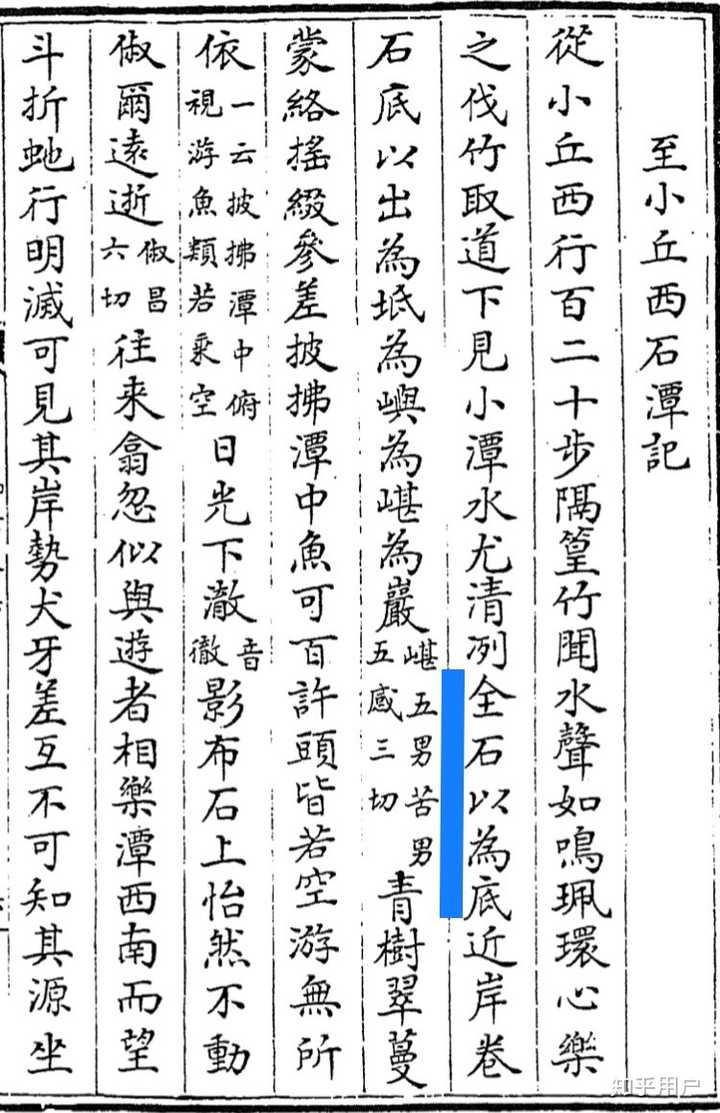 至小丘西石潭記
從小丘西行百二十步隔篁竹聞水聲如鳴珮環心樂
之伐竹取道下見小潭水尤清冽全石以為底近岸卷
石底以出為坻為嶼為嵁為巖嵁五男苦男五感三切青樹翠蔓
蒙絡搖綴參差披拂潭中魚可百許頭皆若空游無所
依一云披拂潭中俯視游魚類若乘空日光下澈音徹影布石上怡然不動
俶爾遠逝俶昌六切往来翕忽似與遊者相樂潭西南而望
斗折虵行明滅可見其岸勢犬牙差互不可知其源坐
知乎用户